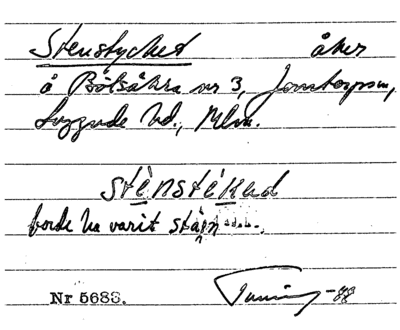 Stenstycket åker
å Bölsåkra nr 3, Jonstorpsn,
Luggude hd., Mlm.
stènstékad
borde ha varit stäin
Nr 5683.
-88